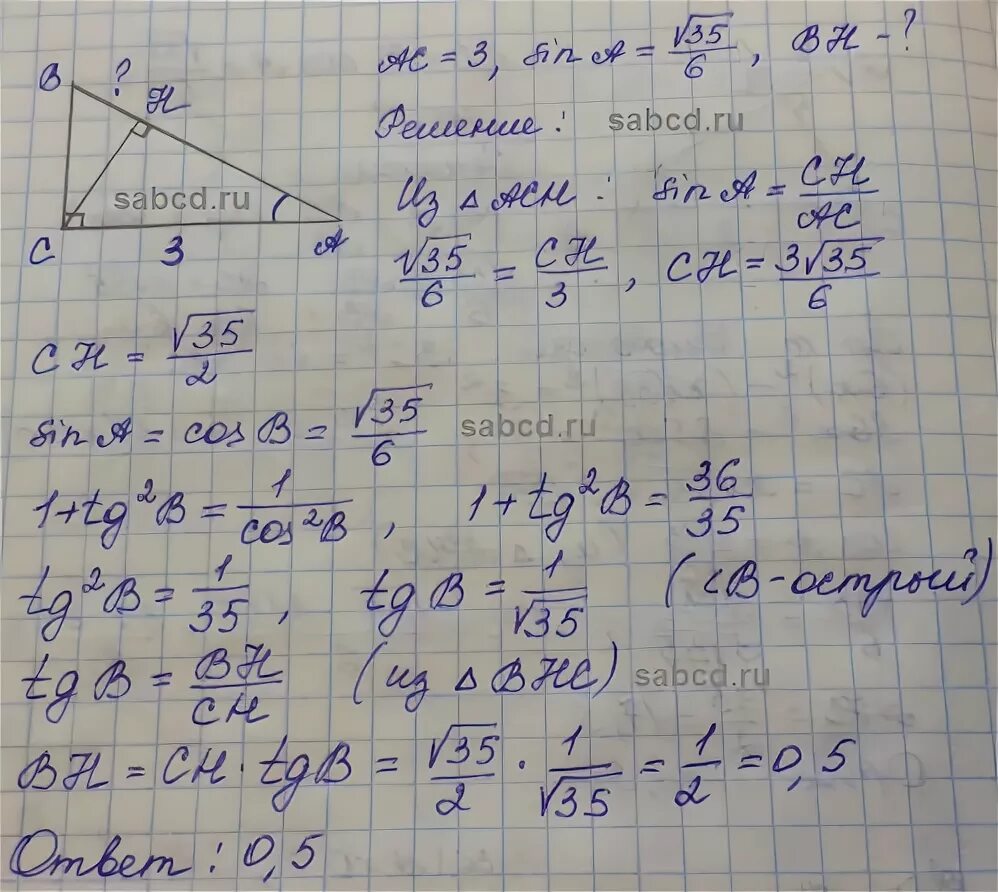 AC = 3, sin A = √35/6, BH - ?
B ? H
Решение: sabcd.ru
sabcd.ru
Из △ ACH: sin A = CH/AC
C 3 A
√35/6 = CH/3, CH = 3√35/6
CH = √35/2
sin A = cos B = √35/6 sabcd.ru
1+tg²B = 1/cos²B, 1+tg²B = 36/35
tg²B = 1/35, tg B = 1/√35 (∠B-острый)
tg B = BH/CH (из △ BHC) sabcd.ru
BH = CH · tg B = √35/2 · 1/√35 = 1/2 = 0,5
Ответ: 0,5